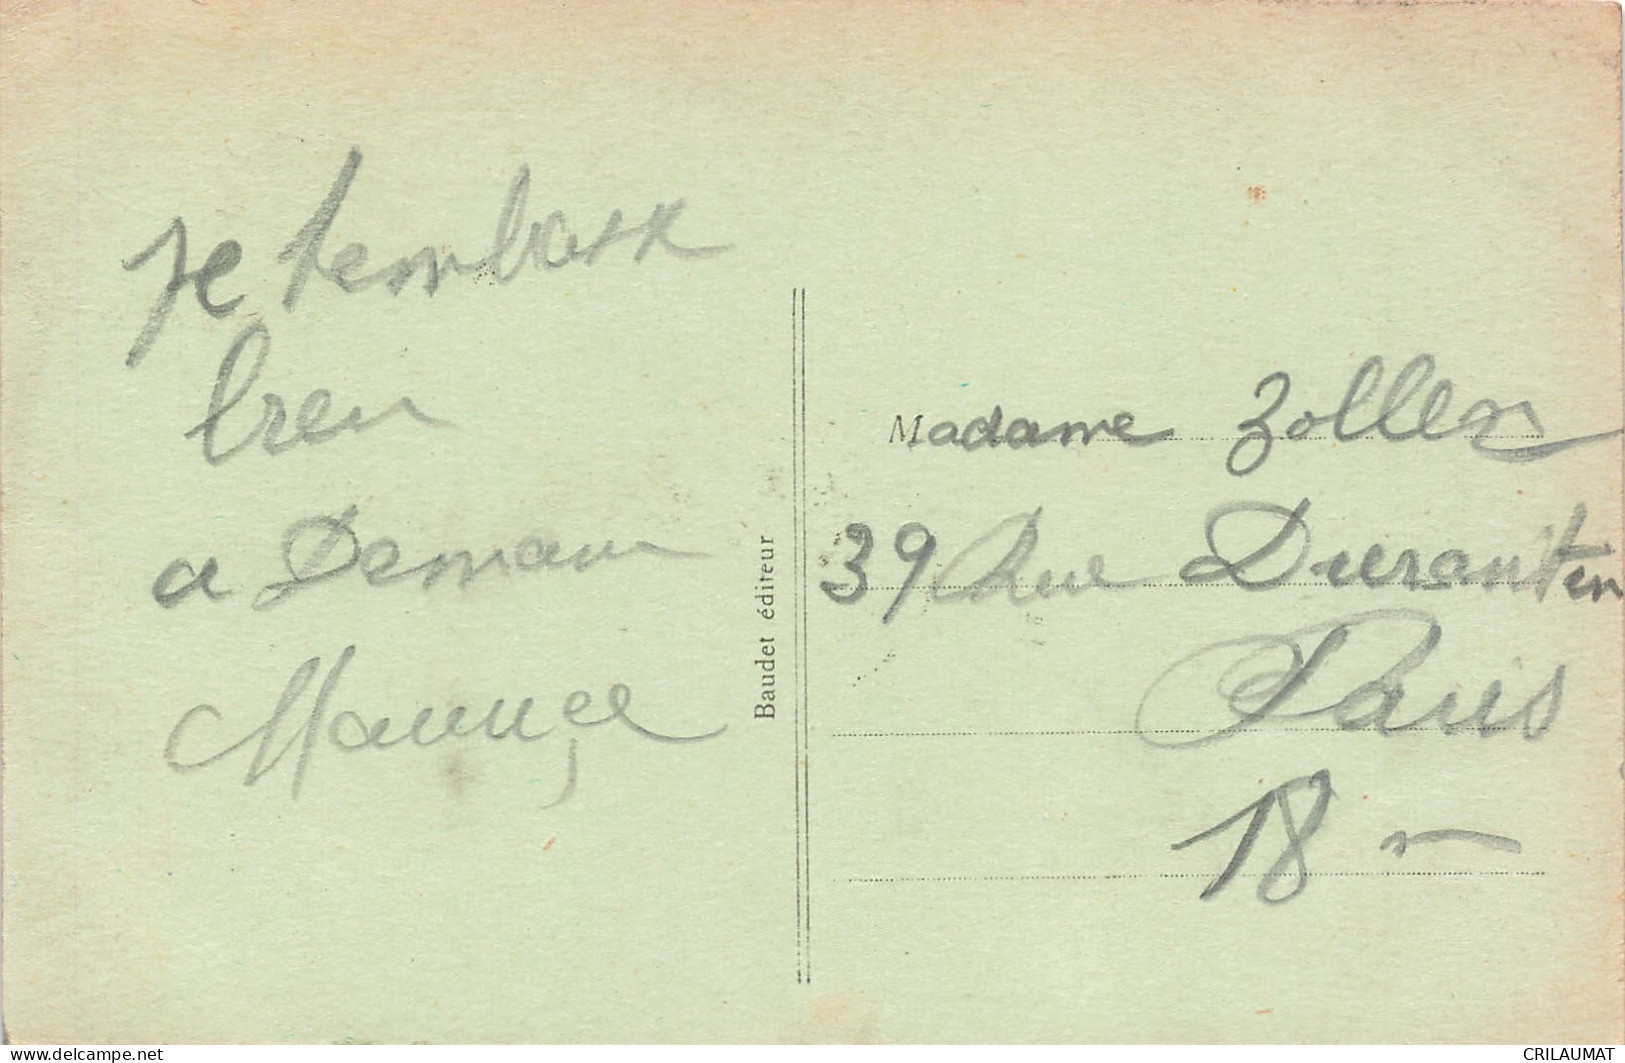 Je t'embrasse
bien
a Demain
Maurice
Baudet éditeur
Madame Zoller
39 Rue Durantin
Paris
18
delcampe.net
CRILAUMAT